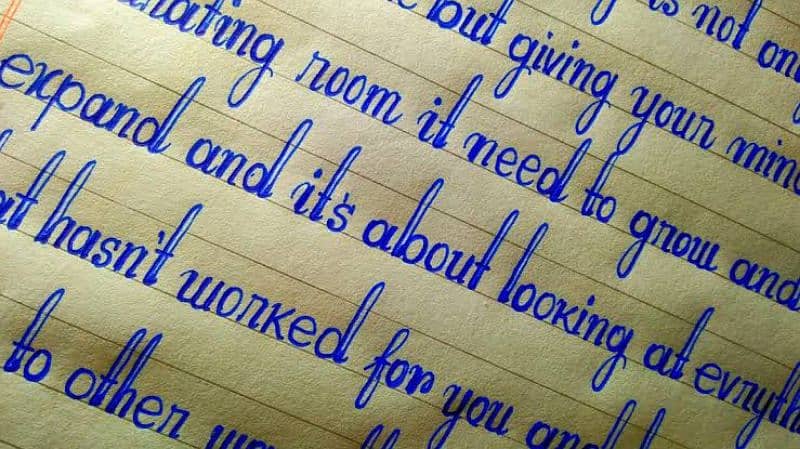 is not only
but giving your mind
nating room it need to grow and
expand and it's about looking at evryth
at hasn't worked for you and
to other